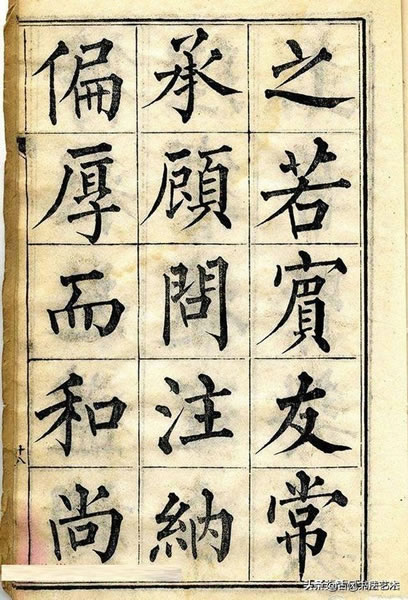 之若賓友常
承顧問注納
偏厚而和尚
十八
头条@古风书法艺术